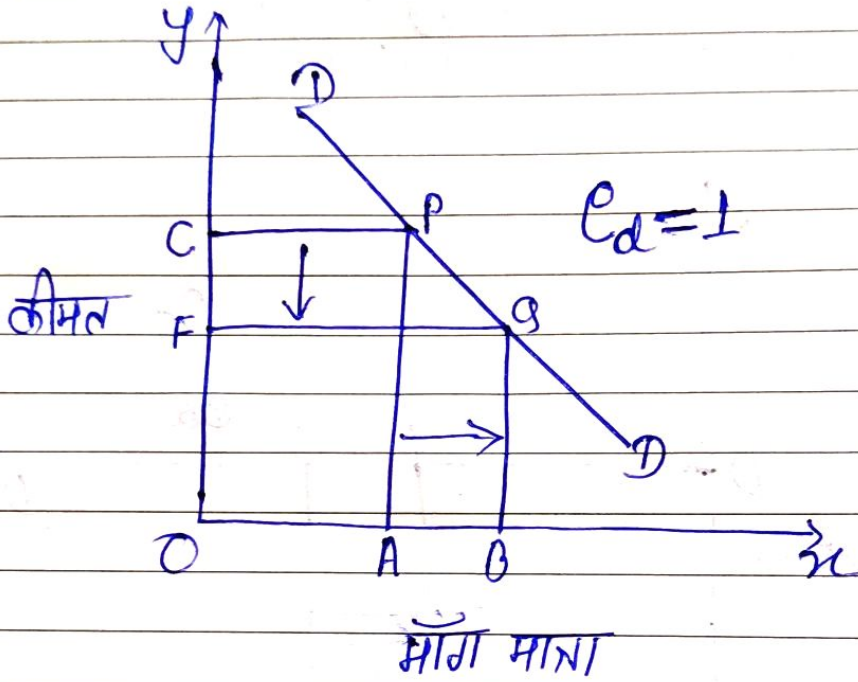 y
D
C P e_d=1
कीमत F Q
D
O A B x
माँग मात्रा